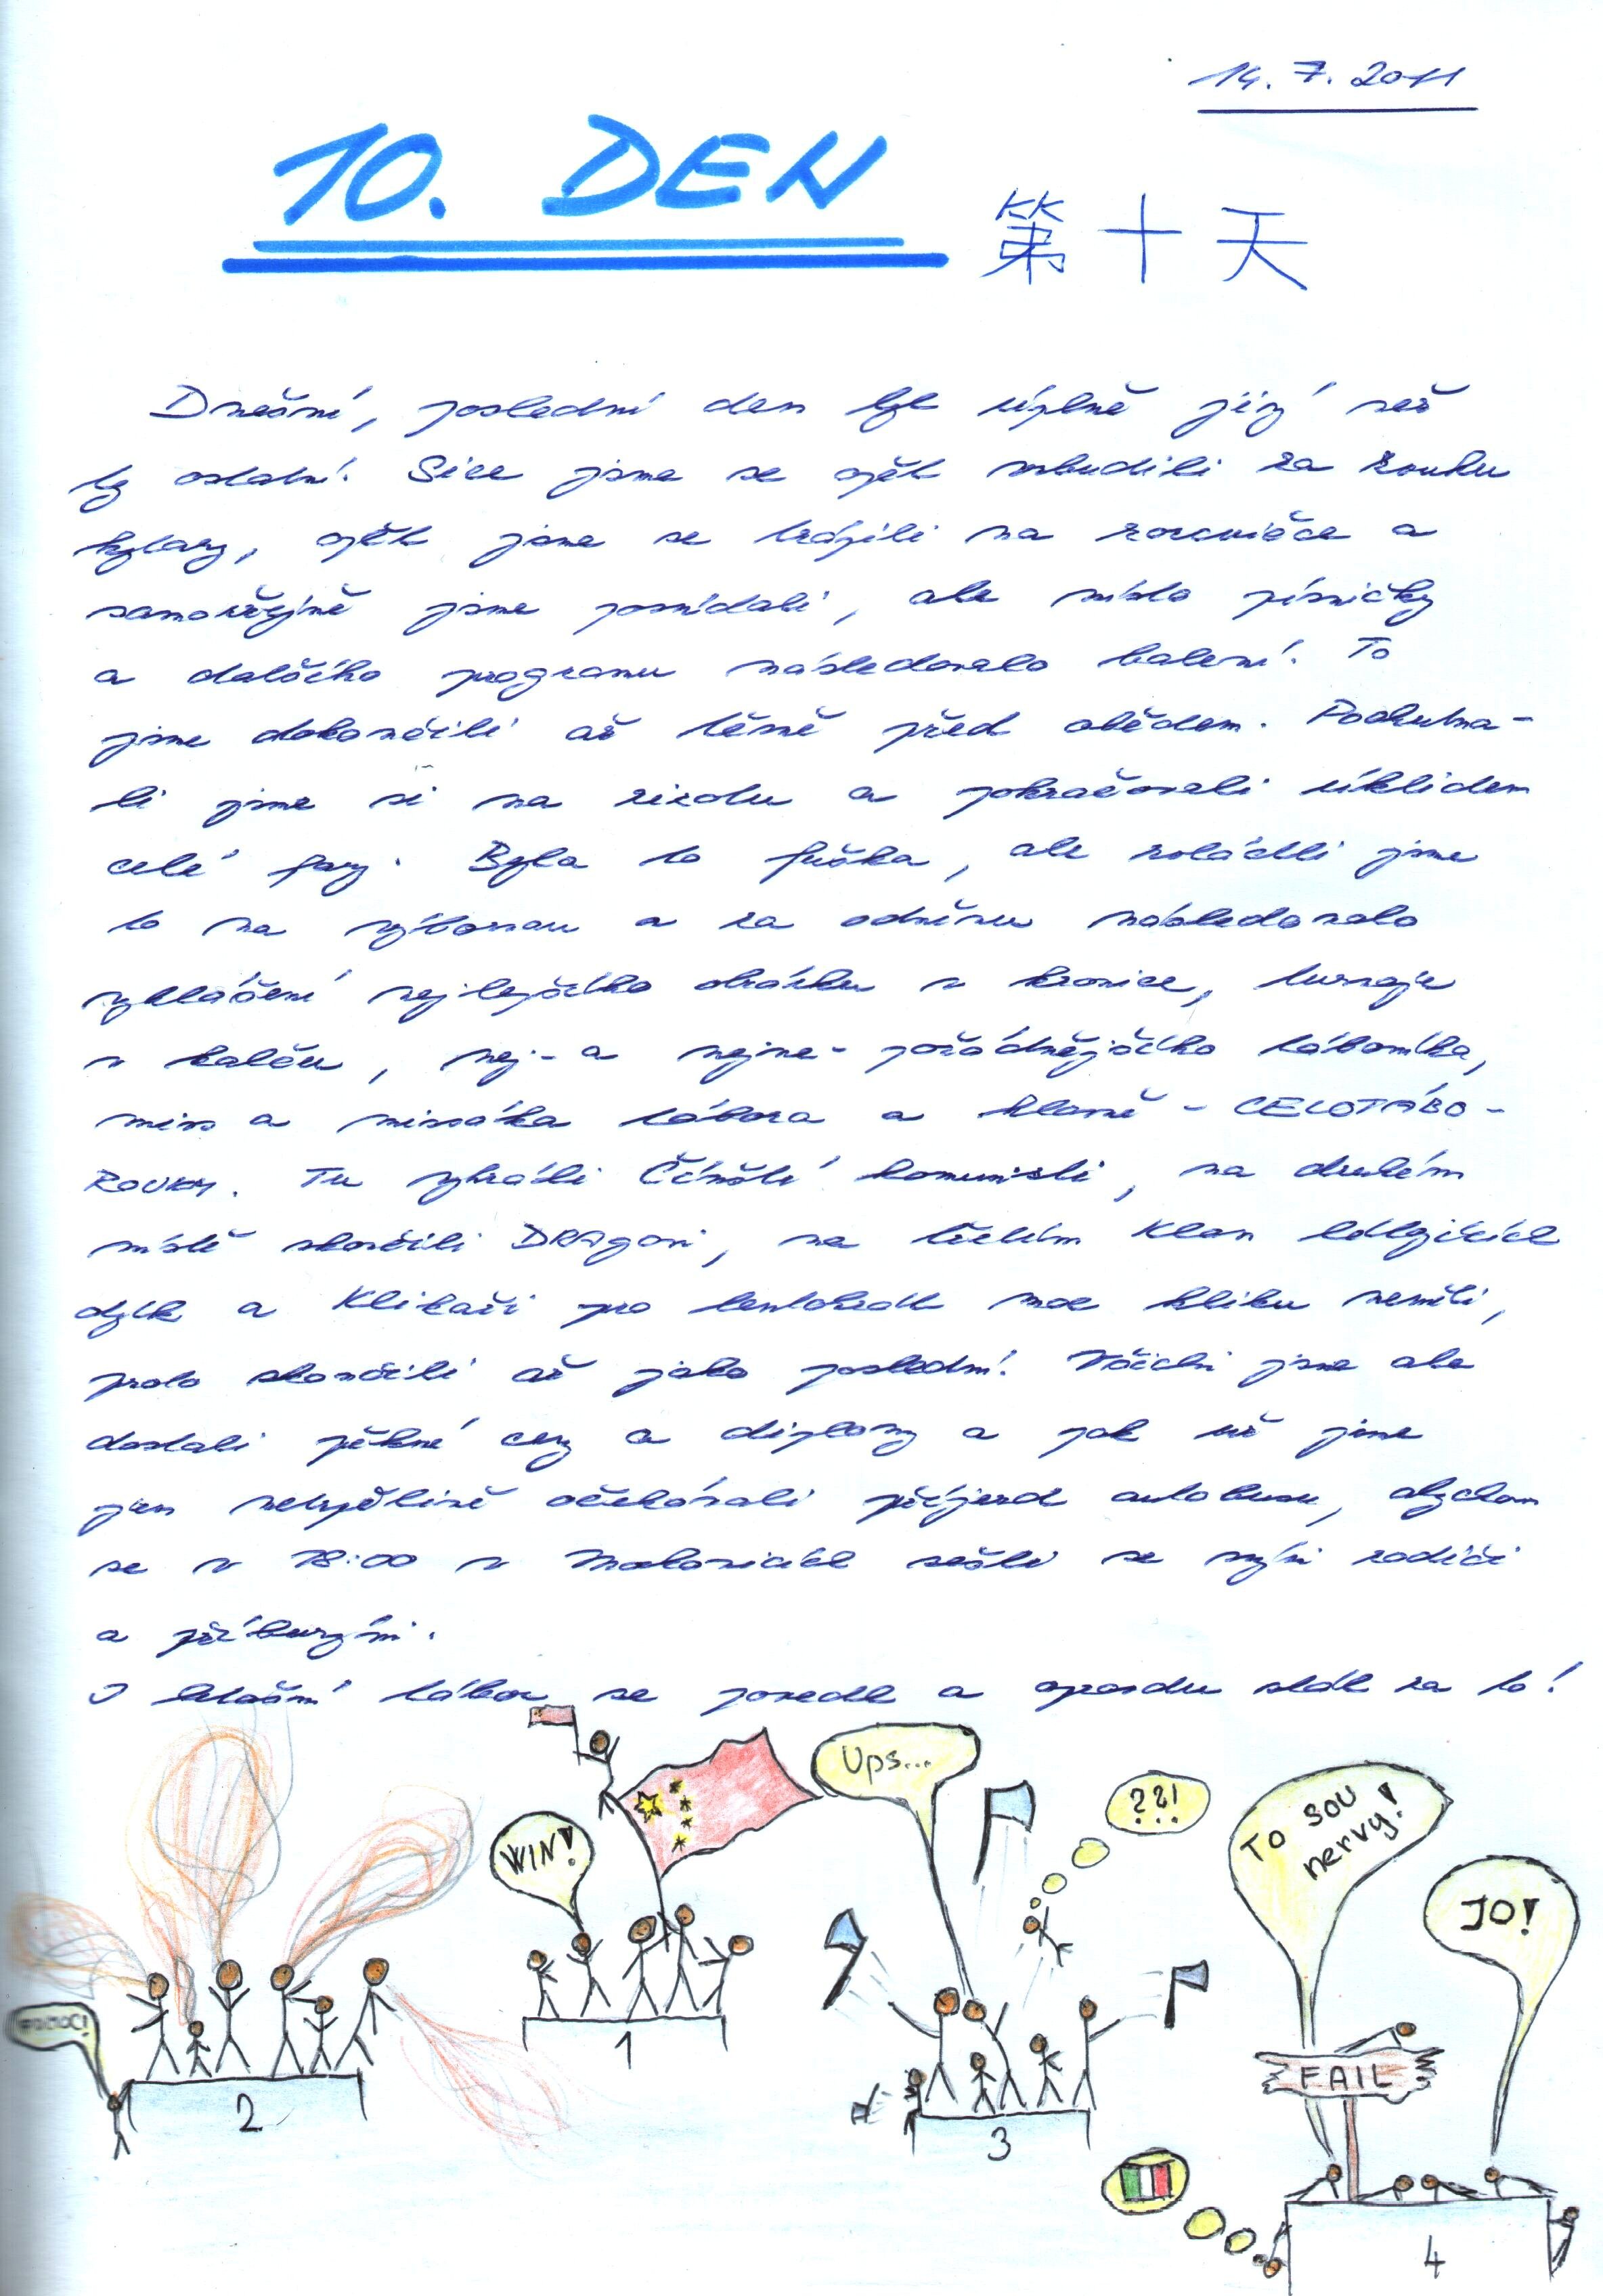 14. 7. 2011
10. DEN
第十天
Dnešní, poslední den byl úplně jiný než
ty ostatní. Sice jsme se opět vzbudili za zvuku
kytary, opět jsme se trápili na rozcvičce a
samozřejmě jsme posnídali, ale místo písničky
a dalšího programu následovalo balení. To
jsme dokončili až těsně před obědem. Pochutna-
li jsme si na rizotu a pokračovali úklidem
celé fary. Byla to fuška, ale zvládli jsme
to na výbornou a za odměnu následovalo
vyhlášení nejlepšího obrázku v kronice, turnaje
v kalču, nej- a nejne- pořádnějšího táborníka,
miss a missáka tábora a hlavně - CELOTÁBO-
ROVKY. Tu vyhráli Čínští komunisti, na druhém
místě skončili DRAgoni, na třetím Klan létajících
dýk a Klikaři pro tentokrát moc kliku neměli,
proto skončili až jako poslední. Všichni jsme ale
dostali pěkné ceny a diplomy a pak už jsme
jen netrpělivě očekávali příjezd autobusu, abychom
se v 18:00 v Maloticích sešli se svými rodiči
a příbuznými.
I letošní tábor se povedl a opravdu stál za to!
Ups...
??!
WIN!
TO SOU
nervy!
JO!
FAIL
1
2
3
4